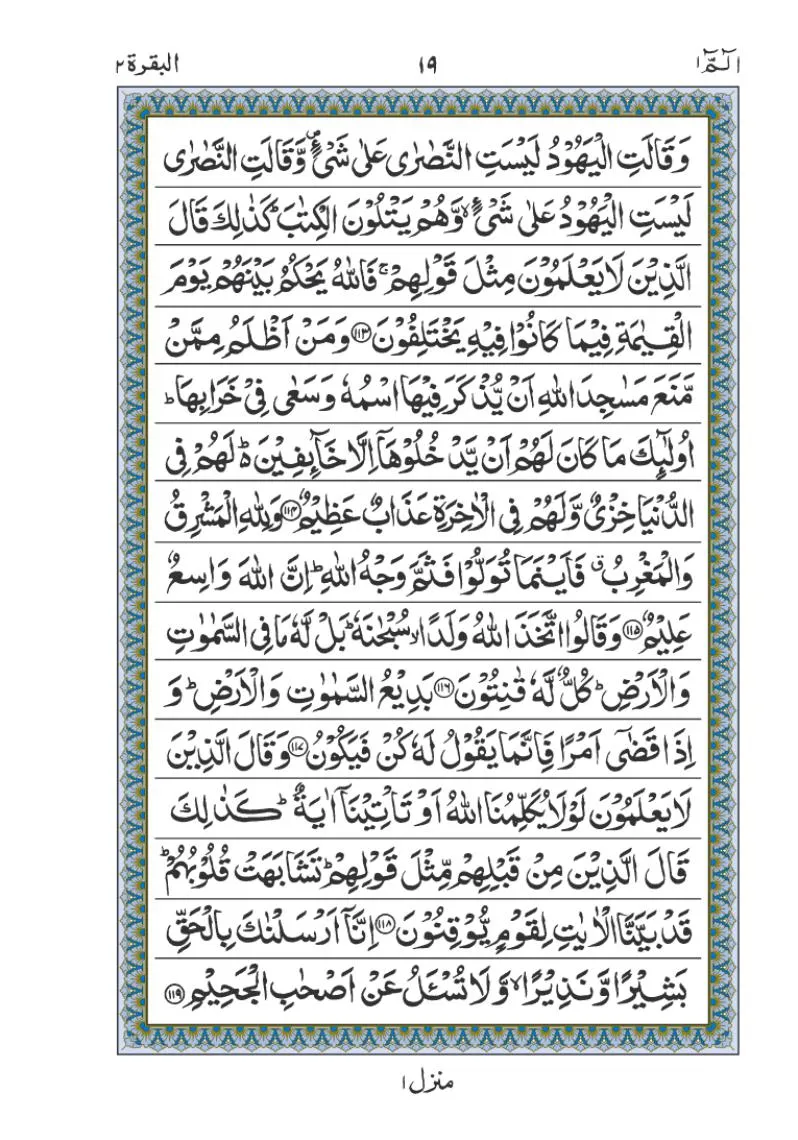 الٓمّٓ ١
١٩
البقرة ٢
وَقَالَتِ الْيَهُوْدُ لَيْسَتِ النَّصٰرٰى عَلٰى شَيْءٍ ۪ وَّقَالَتِ النَّصٰرٰى
لَيْسَتِ الْيَهُوْدُ عَلٰى شَيْءٍ ۙ وَّهُمْ يَتْلُوْنَ الْكِتٰبَ ؕ كَذٰلِكَ قَالَ
الَّذِيْنَ لَا يَعْلَمُوْنَ مِثْلَ قَوْلِهِمْ ۚ فَاللّٰهُ يَحْكُمُ بَيْنَهُمْ يَوْمَ
الْقِيٰمَةِ فِيْمَا كَانُوْا فِيْهِ يَخْتَلِفُوْنَ ﴿۱۱۳﴾ وَمَنْ اَظْلَمُ مِمَّنْ
مَّنَعَ مَسٰجِدَ اللّٰهِ اَنْ يُّذْكَرَ فِيْهَا اسْمُهٗ وَسَعٰى فِيْ خَرَابِهَا ؕ
اُولٰٓئِكَ مَا كَانَ لَهُمْ اَنْ يَّدْخُلُوْهَاۤ اِلَّا خَآئِفِيْنَ ؕ۬ لَهُمْ فِي
الدُّنْيَا خِزْيٌ وَّلَهُمْ فِي الْاٰخِرَةِ عَذَابٌ عَظِيْمٌ ﴿۱۱۴﴾ وَلِلّٰهِ الْمَشْرِقُ
وَالْمَغْرِبُ ۗ فَاَيْنَمَا تُوَلُّوْا فَثَمَّ وَجْهُ اللّٰهِ ؕ اِنَّ اللّٰهَ وَاسِعٌ
عَلِيْمٌ ﴿۱۱۵﴾ وَقَالُوا اتَّخَذَ اللّٰهُ وَلَدًا ۙ سُبْحٰنَهٗ ؕ بَلْ لَّهٗ مَا فِي السَّمٰوٰتِ
وَالْاَرْضِ ؕ كُلٌّ لَّهٗ قٰنِتُوْنَ ﴿۱۱۶﴾ بَدِيْعُ السَّمٰوٰتِ وَالْاَرْضِ ؕ وَ
اِذَا قَضٰۤى اَمْرًا فَاِنَّمَا يَقُوْلُ لَهٗ كُنْ فَيَكُوْنُ ﴿۱۱۷﴾ وَقَالَ الَّذِيْنَ
لَا يَعْلَمُوْنَ لَوْلَا يُكَلِّمُنَا اللّٰهُ اَوْ تَاْتِيْنَاۤ اٰيَةٌ ؕ كَذٰلِكَ
قَالَ الَّذِيْنَ مِنْ قَبْلِهِمْ مِّثْلَ قَوْلِهِمْ ؕ تَشَابَهَتْ قُلُوْبُهُمْ ؕ
قَدْ بَيَّنَّا الْاٰيٰتِ لِقَوْمٍ يُّوْقِنُوْنَ ﴿۱۱۸﴾ اِنَّاۤ اَرْسَلْنٰكَ بِالْحَقِّ
بَشِيْرًا وَّنَذِيْرًا ۙ وَّلَا تُسْـَٔلُ عَنْ اَصْحٰبِ الْجَحِيْمِ ﴿۱۱۹﴾
منزل ١